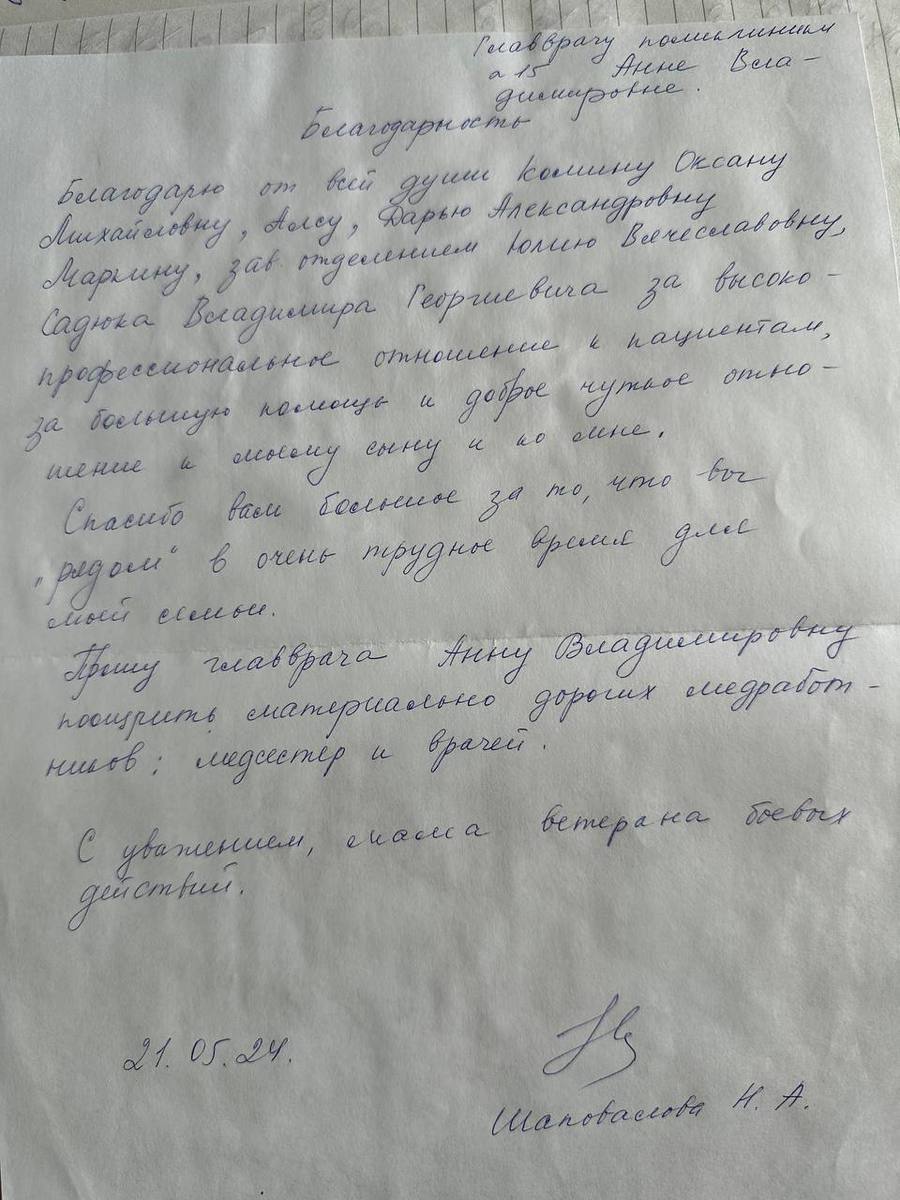 Главврачу поликлиники
№ 15 Анне Вла-
димировне.
Благодарность
Благодарю от всей души Комину Оксану
Михайловну, Алсу, Дарью Александровну
Маркину, зав. отделением Юлию Вячеславовну,
Садюка Владимира Георгиевича за высоко-
профессиональное отношение к пациентам,
за большую помощь и доброе чуткое отно-
шение к моему сыну и ко мне.
Спасибо вам большое за то, что вы
„рядом“ в очень трудное время для
моей семьи.
Прошу главврача Анну Владимировну
поощрить материально дорогих медработ-
ников: медсестер и врачей.
С уважением, мама ветерана боевых
действий.
21.05.24.
Шаповалова Н. А.